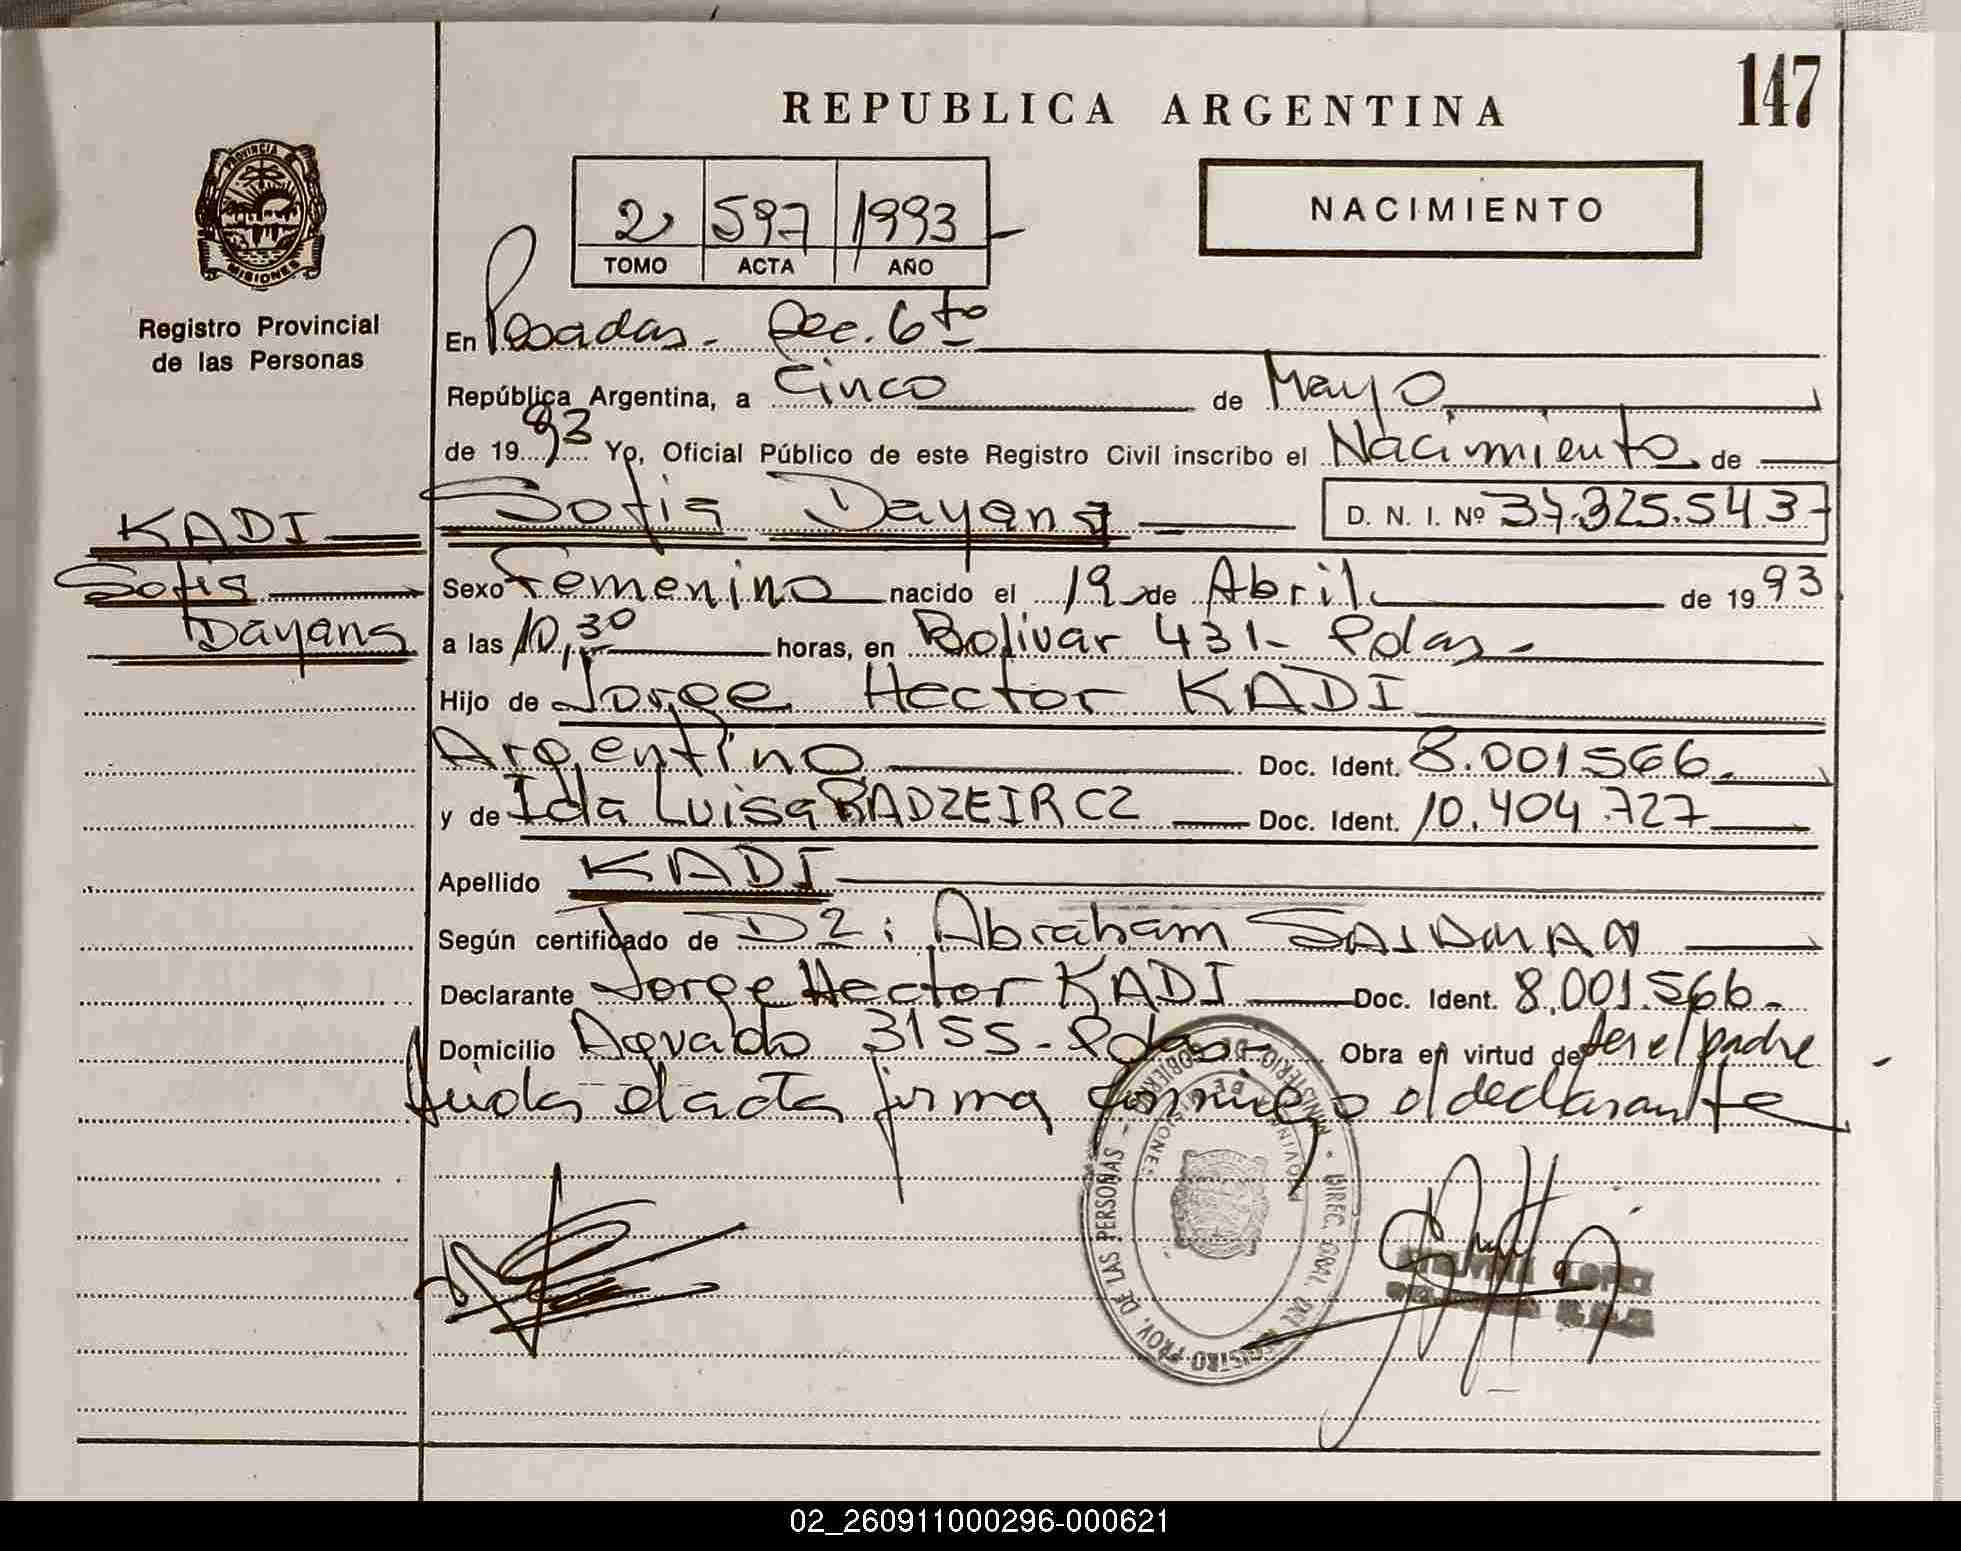 147
REPUBLICA ARGENTINA
PROVINCIA DE
MISIONES
Registro Provincial
de las Personas
2 597 1993
TOMO ACTA AÑO
NACIMIENTO
En Posadas - Sec. 6to
República Argentina, a Cinco de Mayo
de 1993 Yo, Oficial Público de este Registro Civil inscribo el Nacimiento de
KADI
Sofia
Dayana
Sofia Dayana D. N. I. Nº 37.325.543-
Sexo Femenino nacido el 19 de Abril de 1993
a las 10,30 horas, en Bolivar 431- Pdas -
Hijo de Jorge Hector KADI
Argentino Doc. Ident. 8.001566
y de Ida Luisa RADZEIRCZ Doc. Ident. 10.404.727
Apellido KADI
Según certificado de D2: Abraham SAIDMAN
Declarante Jorge Hector KADI Doc. Ident. 8.001.566-
Domicilio Aguado 3155- Pdas- Obra en virtud de ser el padre -
leida el acta firma conmigo el declarante
MINISTERIO DE GOBIERNO - DIREC. GRAL. DEL REGISTRO PROV. DE LAS PERSONAS -
PROVINCIA DE MISIONES
02_260911000296-000621